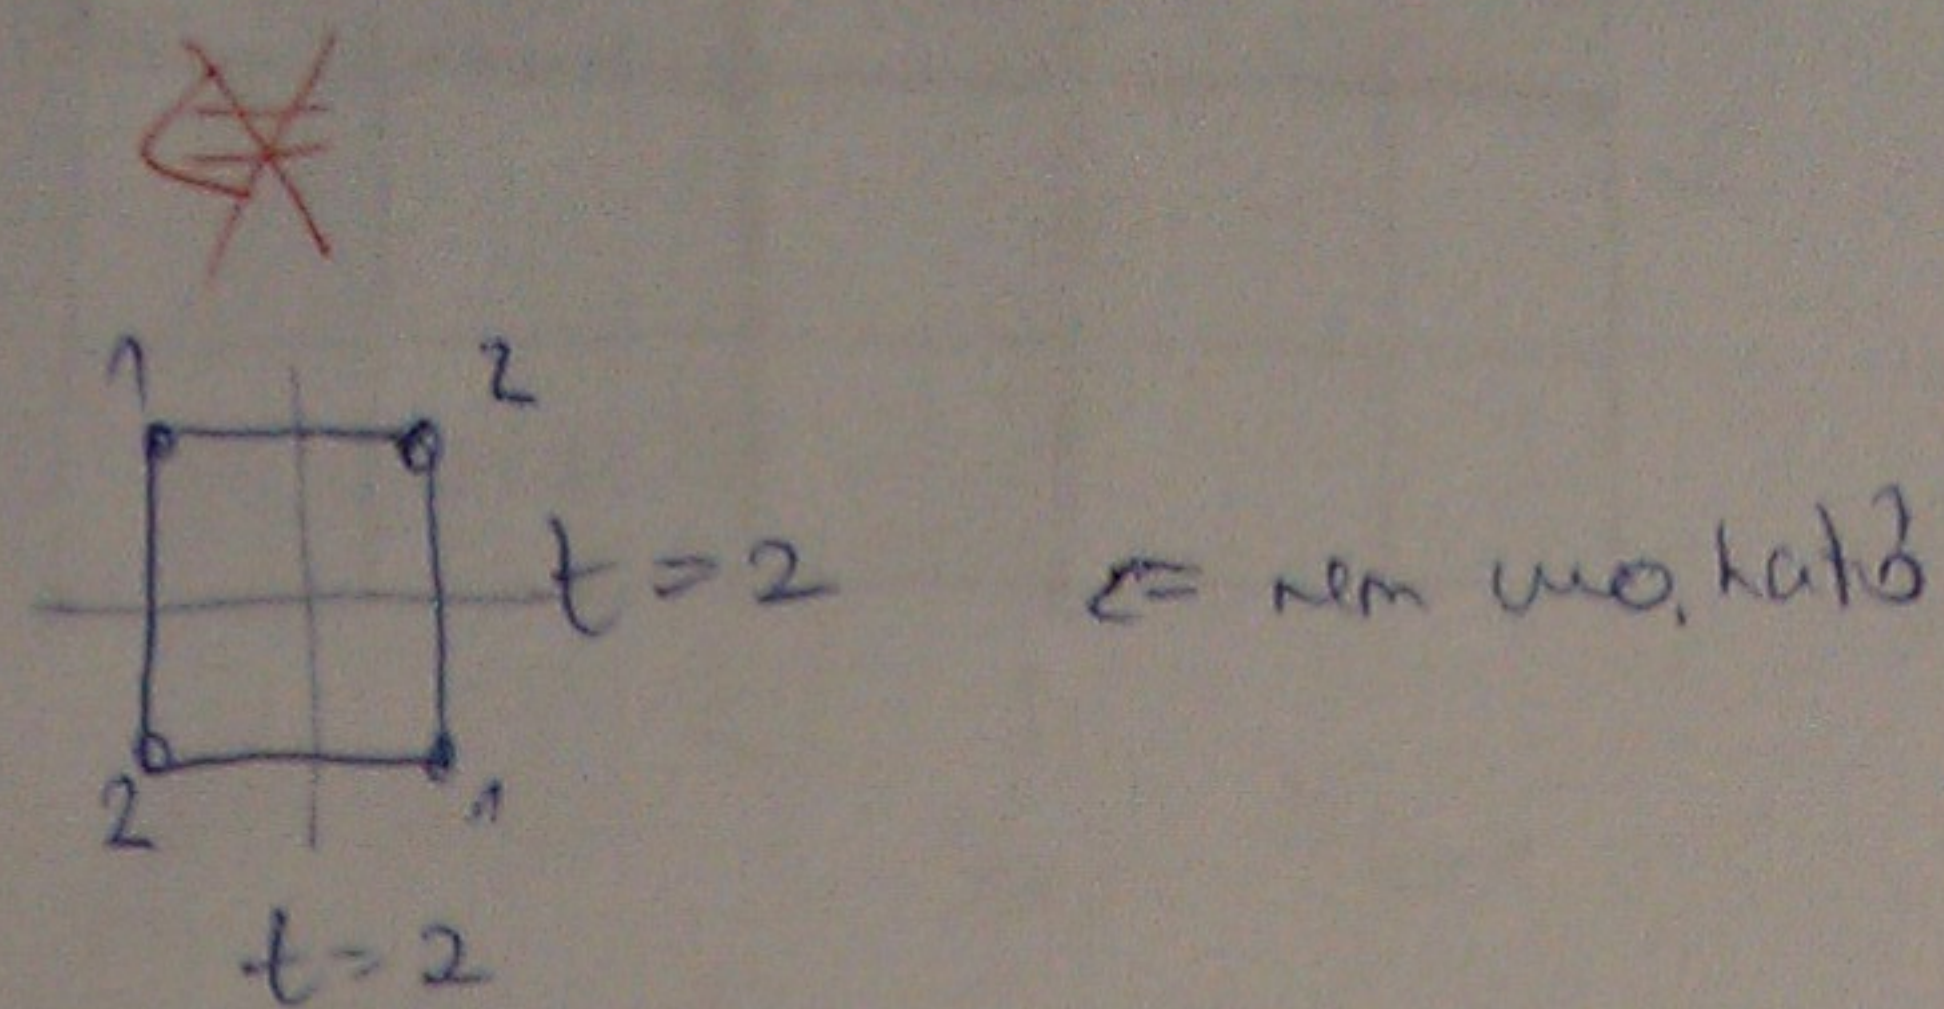 1 2
t = 2 ⇐ nem mo. ható
2 1
t = 2